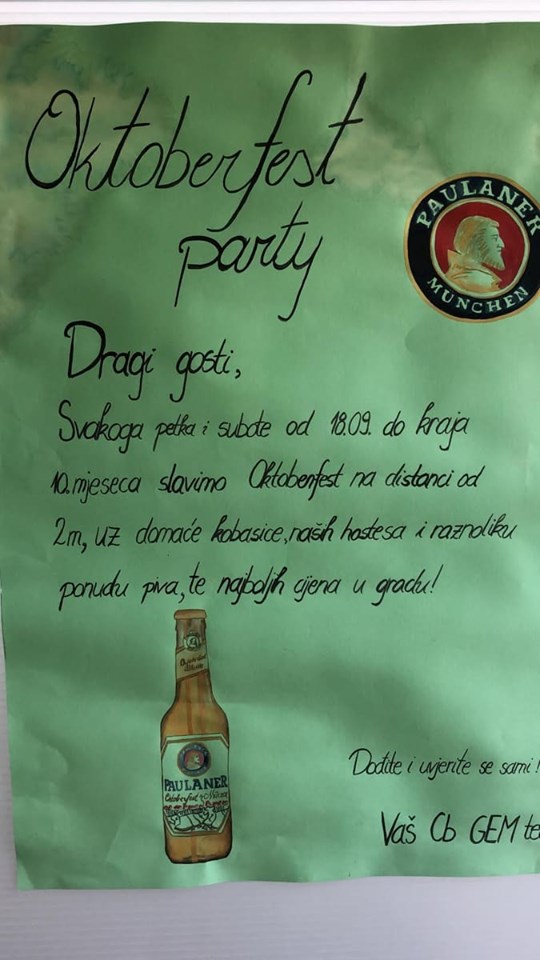 Oktoberfest
party
PAULANER
MÜNCHEN
Dragi gosti,
Svakoga petka i subote od 18.09. do kraja
10. mjeseca slavimo Oktobenfest na distanci od
2m, uz domaće kobasice, naših hostesa i raznoliku
ponudu piva, te najboljih cijena u gradu!
PAULANER
Dođite i uvjerite se sami!
Vaš Cb GEM te